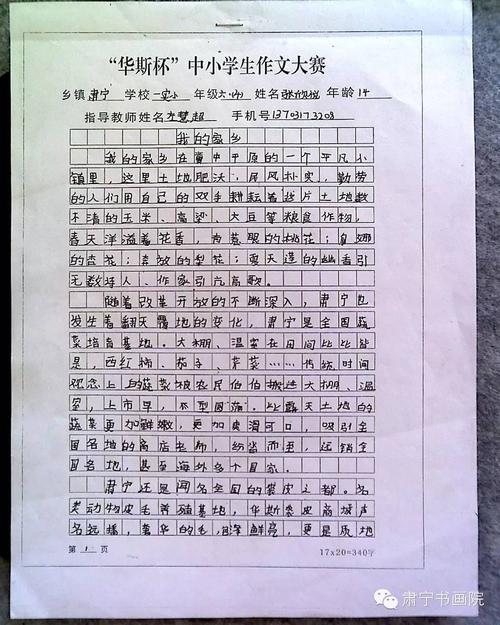 “华斯杯”中小学生作文大赛
乡镇肃宁 学校一实小 年级六 姓名张欣悦 年龄14
指导教师姓名 慧超 手机号13703173208
我的家乡
我的家乡在冀中平原的一个平凡小
镇里，这里土地肥沃，民风朴实，勤劳
的人们用自己的双手耕耘着这片土地数
不清的玉米、高粱、大豆等粮食作物，
春天洋溢着花香，的桃花；
的杏花；奔放的梨花；连的幽香引
无数诗人、作家引亢高歌。
随着改革开放的不断深入，肃宁也
发生着翻天覆地的变化，肃宁是全国蔬
菜培育基地。大棚、温室在田间比比皆
是，西红柿、茄子、芹菜……传统时间
观念上的蔬菜被农民伯伯搬进大棚、温
室，上市早，果型圆满，比露天土地的
蔬菜更加鲜嫩，更加爽滑可口，吸引全
国各地的商店老师，纷沓而至，远销全
国各地，甚至海外多个国家。
肃宁还是闻名全国的裘皮之都。各
类动物皮毛养殖基地，华斯裘皮商城声
名远播，奢华的毛，鲜亮，更是质地
第 1 页
17×20=340字
肃宁书画院